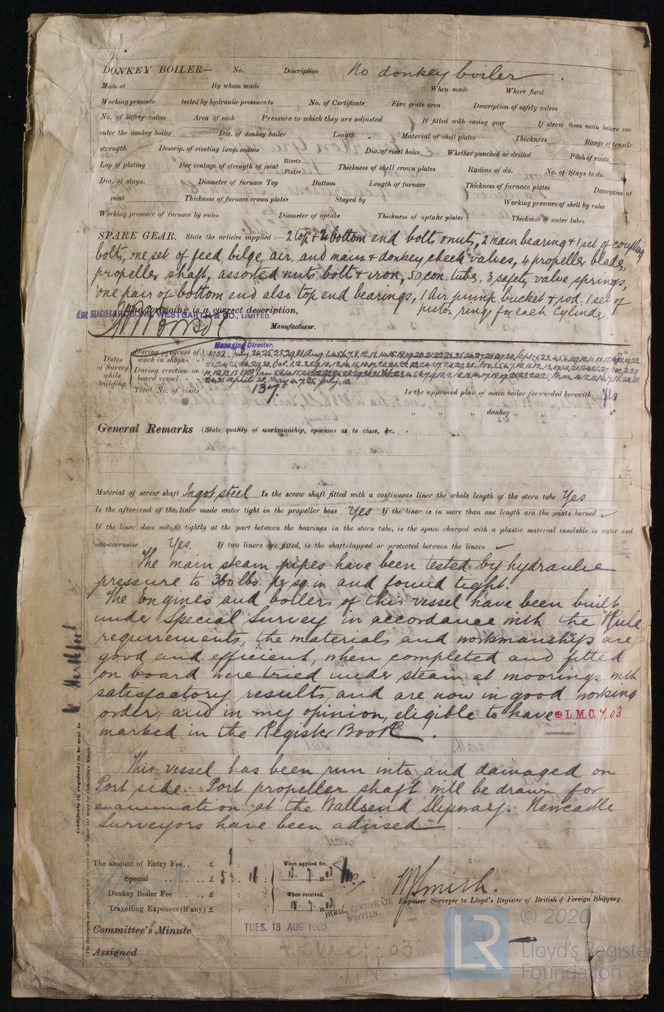 DONKEY BOILER— No. Description No donkey boiler.
Made at By whom made When made Where fixed
Working pressure tested by hydraulic pressure to No. of Certificate Fire grate area Description of safety valves
No. of safety valves Area of each Pressure to which they are adjusted If fitted with easing gear If steam from main boilers can
enter the donkey boiler Dia. of donkey boiler Length Material of shell plates Thickness Range of tensile
strength Descrip. of riveting long. seams Dia. of rivet holes Whether punched or drilled Pitch of rivets
Lap of plating Per centage of strength of joint Rivets Plates Thickness of shell crown plates Radius of do. No. of Stays to do.
Dia. of stays. Diameter of furnace Top Bottom Length of furnace Thickness of furnace plates Description of
joint Thickness of furnace crown plates Stayed by Working pressure of shell by rules
Working pressure of furnace by rules Diameter of uptake Thickness of uptake plates Thickness of water tubes
SPARE GEAR. State the articles supplied:— 2 top & 2 bottom end bolts & nuts, 2 main bearing & 1 set of coupling
bolts, one set of feed, bilge, air, and main & donkey check valves, 4 propeller blades,
propeller shaft, assorted nuts bolts & iron, 50 con. tubes, 3 safety valve springs,
one pair of bottom end also top end bearings, 1 Air pump bucket & rod, 1 set of
piston rings for each cylinder
The foregoing is a correct description,
for RICHARDSONS WESTGARTH & CO., LIMITED.
Manufacturer.
Managing Director.
Dates of Survey while building
During progress of work in shops - -
During erection on board vessel - - -
Total No. of visits 137.
Is the approved plan of main boiler forwarded herewith
" " " donkey " "
General Remarks (State quality of workmanship, opinions as to class, &c.
Material of screw shaft Ingot steel Is the screw shaft fitted with a continuous liner the whole length of the stern tube Yes
Is the after end of the liner made water tight in the propeller boss Yes If the liner is in more than one length are the joints burned
If the liner does not fit tightly at the part between the bearings in the stern tube, is the space charged with a plastic material insoluble in water and
non-corrosive Yes. If two liners are fitted, is the shaft lapped or protected between the liners
The main steam pipes have been tested by hydraulic
pressure to 360 lbs. per sq. in and found tight.
The Engines and boilers of this vessel have been built
under Special Survey in accordance with the Rule
requirements, the materials and workmanship are
good and efficient, when completed and fitted
on board were tried under steam at moorings with
satisfactory results and are now in good working
order, and in my opinion, eligible to have L.M.C. 7.03
marked in the Register Book.
This vessel has been run into and damaged on
Port side. Port propeller shaft will be drawn for
examination at the Wallsend Slipway. Newcastle
Surveyors have been advised.
The amount of Entry Fee .. £ When applied for,
Special .. .. £
Donkey Boiler Fee .. .. £ When received,
Travelling Expenses (if any) £
W Smith.
Engineer Surveyor to Lloyd's Register of British & Foreign Shipping.
Committee's Minute TUES. 18 AUG 1903
Assigned
LR
© 2020
Lloyd's Register
Foundation